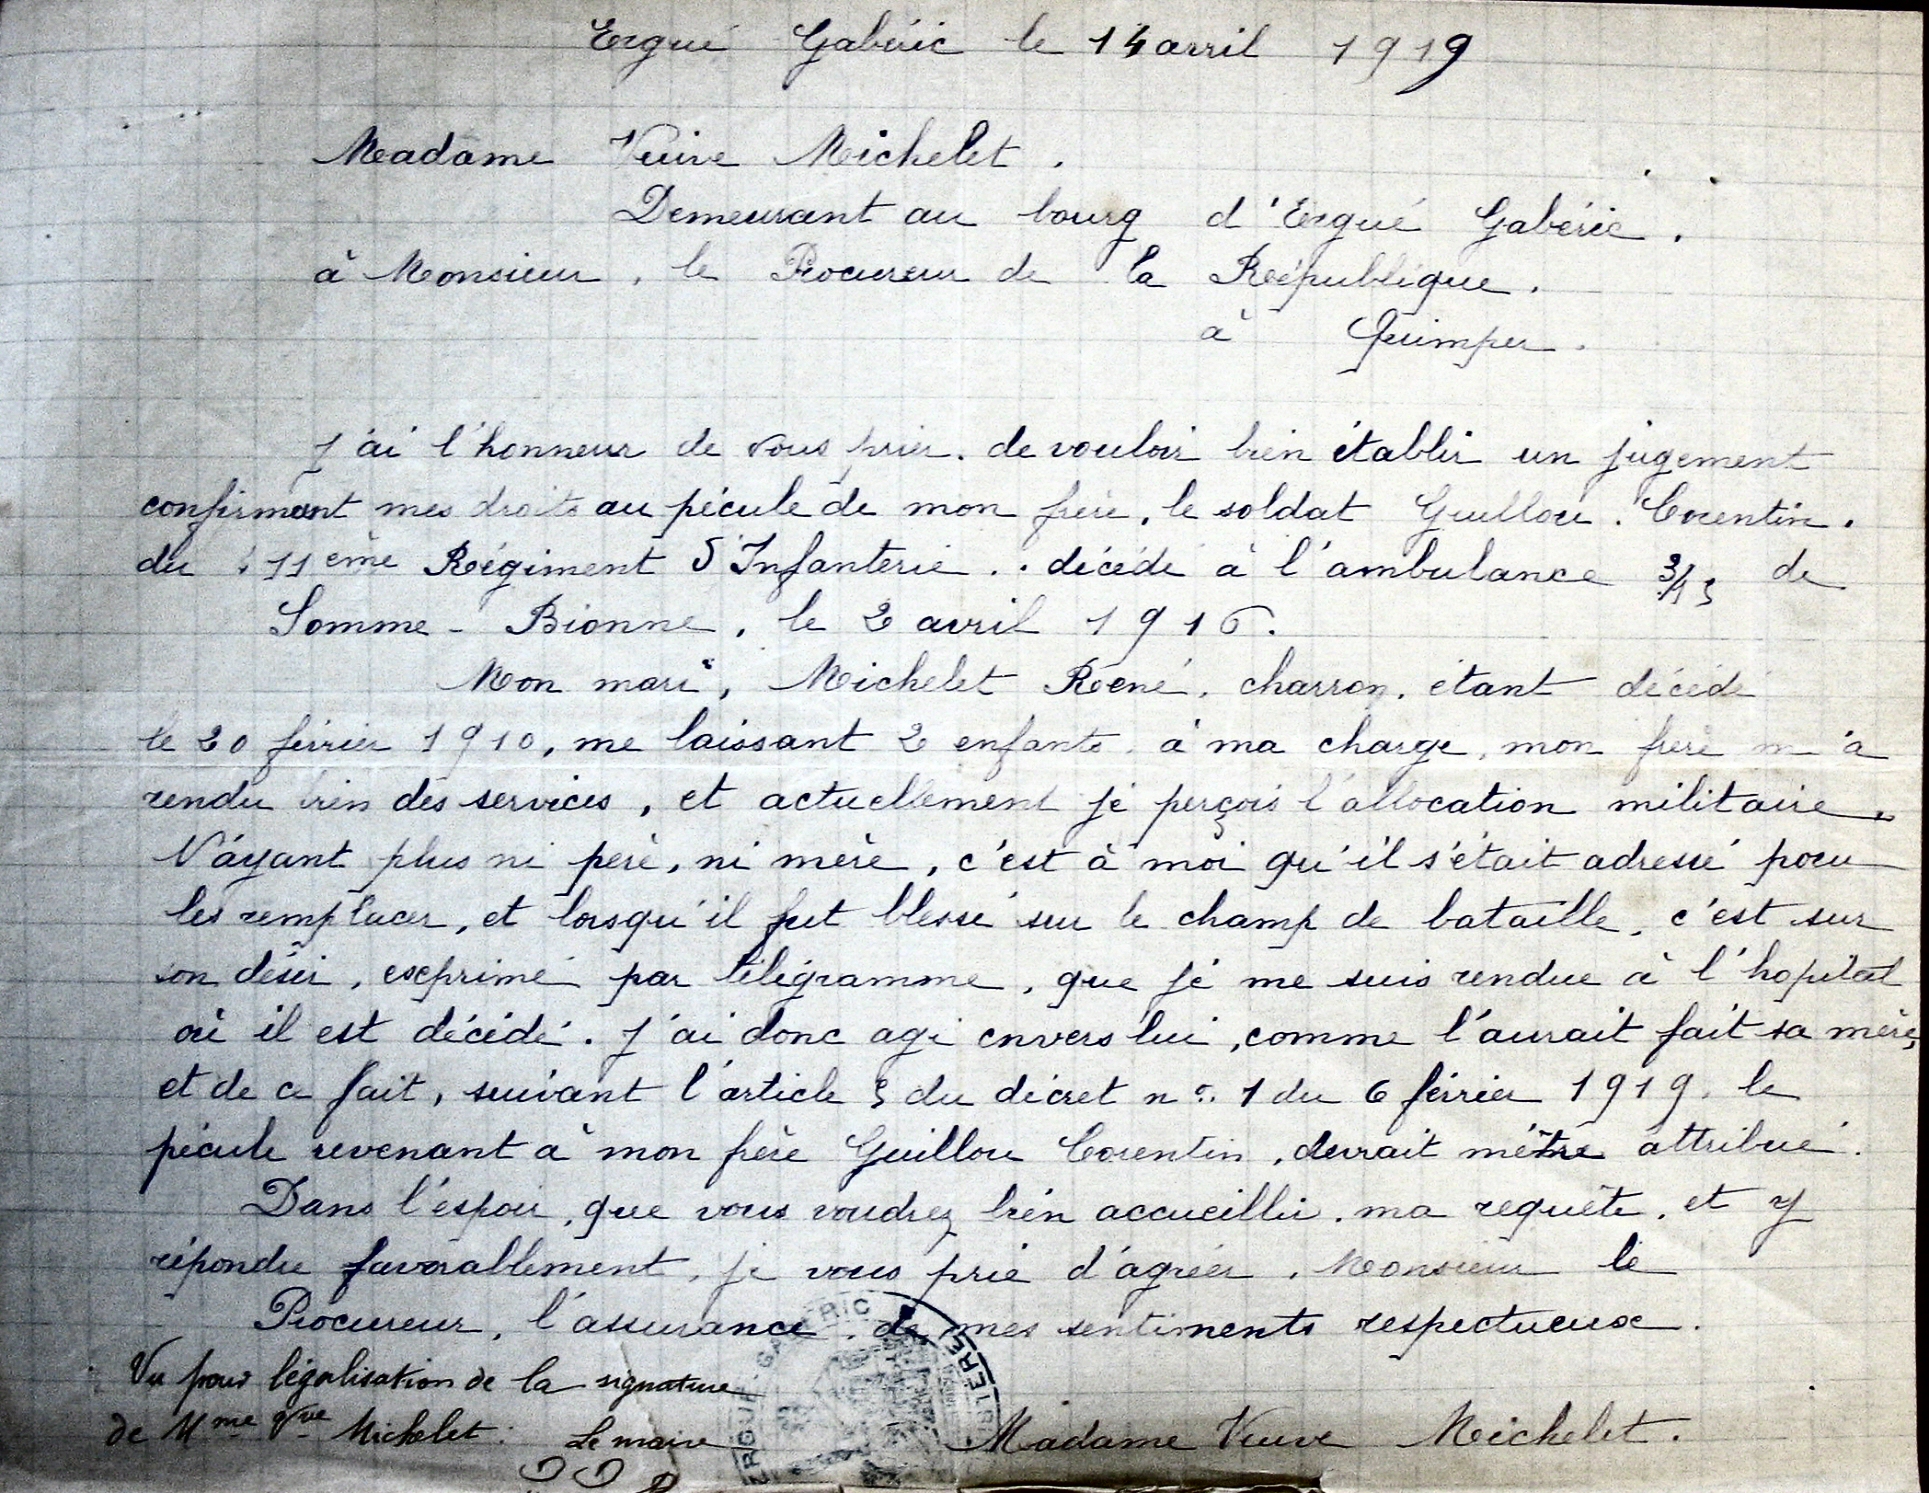 Ergué Gabéric le 14 avril 1919
Madame Veuve Michelet.
Demeurant au bourg d'Ergué Gabéric.
à Monsieur, le Procureur de la République.
à Quimper.
J'ai l'honneur de vous prier. de vouloir bien établir un jugement
confirmant mes droits au pécule de mon frère, le soldat Guillou. Corentin.
du 411ème Régiment d'Infanterie.. décédé à l'ambulance 3/15 de
Somme-Bionne, le 2 avril 1916.
Mon mari, Michelet René, charron, étant décédé
le 20 février 1910, me laissant 2 enfants à ma charge, mon frère m'a
rendu bien des services, et actuellement je perçois l'allocation militaire.
N'ayant plus ni père, ni mère, c'est à moi qu'il s'était adressé pour
les remplacer, et lorsqu'il fut blessé sur le champ de bataille, c'est sur
son désir, exprimé par télégramme, que je me suis rendue à l'hopital
où il est décédé. J'ai donc agi envers lui, comme l'aurait fait sa mère,
et de ce fait, suivant l'article 5 du décret n°. 1 du 6 février 1919, le
pécule revenant à mon frère Guillou Corentin, devrait m'être attribué.
Dans l'espoir, que vous voudrez bien accueillir. ma requête. et y
répondre favorablement, je vous prie d'agréer. Monsieur le
Procureur, l'assurance. de mes sentiments respectueux.
Vu pour légalisation de la signature
de Mme Vve Michelet: Le maire
Madame Veuve Michelet.